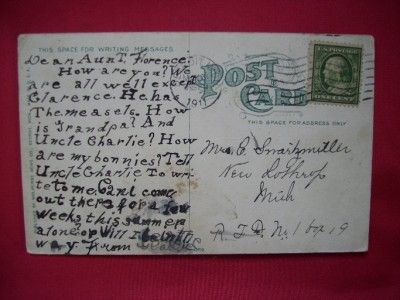 THIS SPACE FOR WRITING MESSAGES.
Dear Aunt. Florence.
How are you? We
are all well except
Clarence. He has
The measels. How
is Grandpa? And
Uncle Charlie? How
are my bonnies? Tell
Uncle Charlie To wri
te to me. Can I come
out there for a few
weeks this summer
alone or will I be in the
way From
POST
CARD
THIS SPACE FOR ADDRESS ONLY
U.S. POSTAGE
ONE CENT
Mrs. E.
New Lothrop
Mich
R.F.D. No. 1 box 19